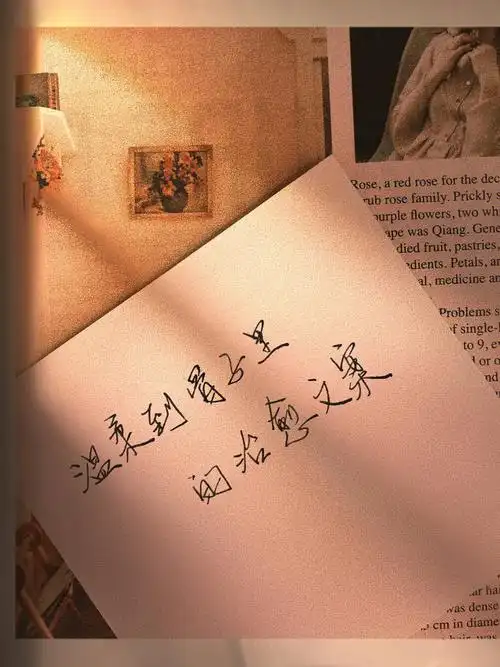 温柔到骨子里
的治愈文案
Rose, a red rose for the dec
rub rose family. Prickly s
purple flowers, two wh
ape was Qiang. Gene
died fruit, pastries,
edients. Petals, an
al, medicine an
Problems s
of single-
to 9, ev
l or o
and
ar ha
was dense
cm in diame
hair, was